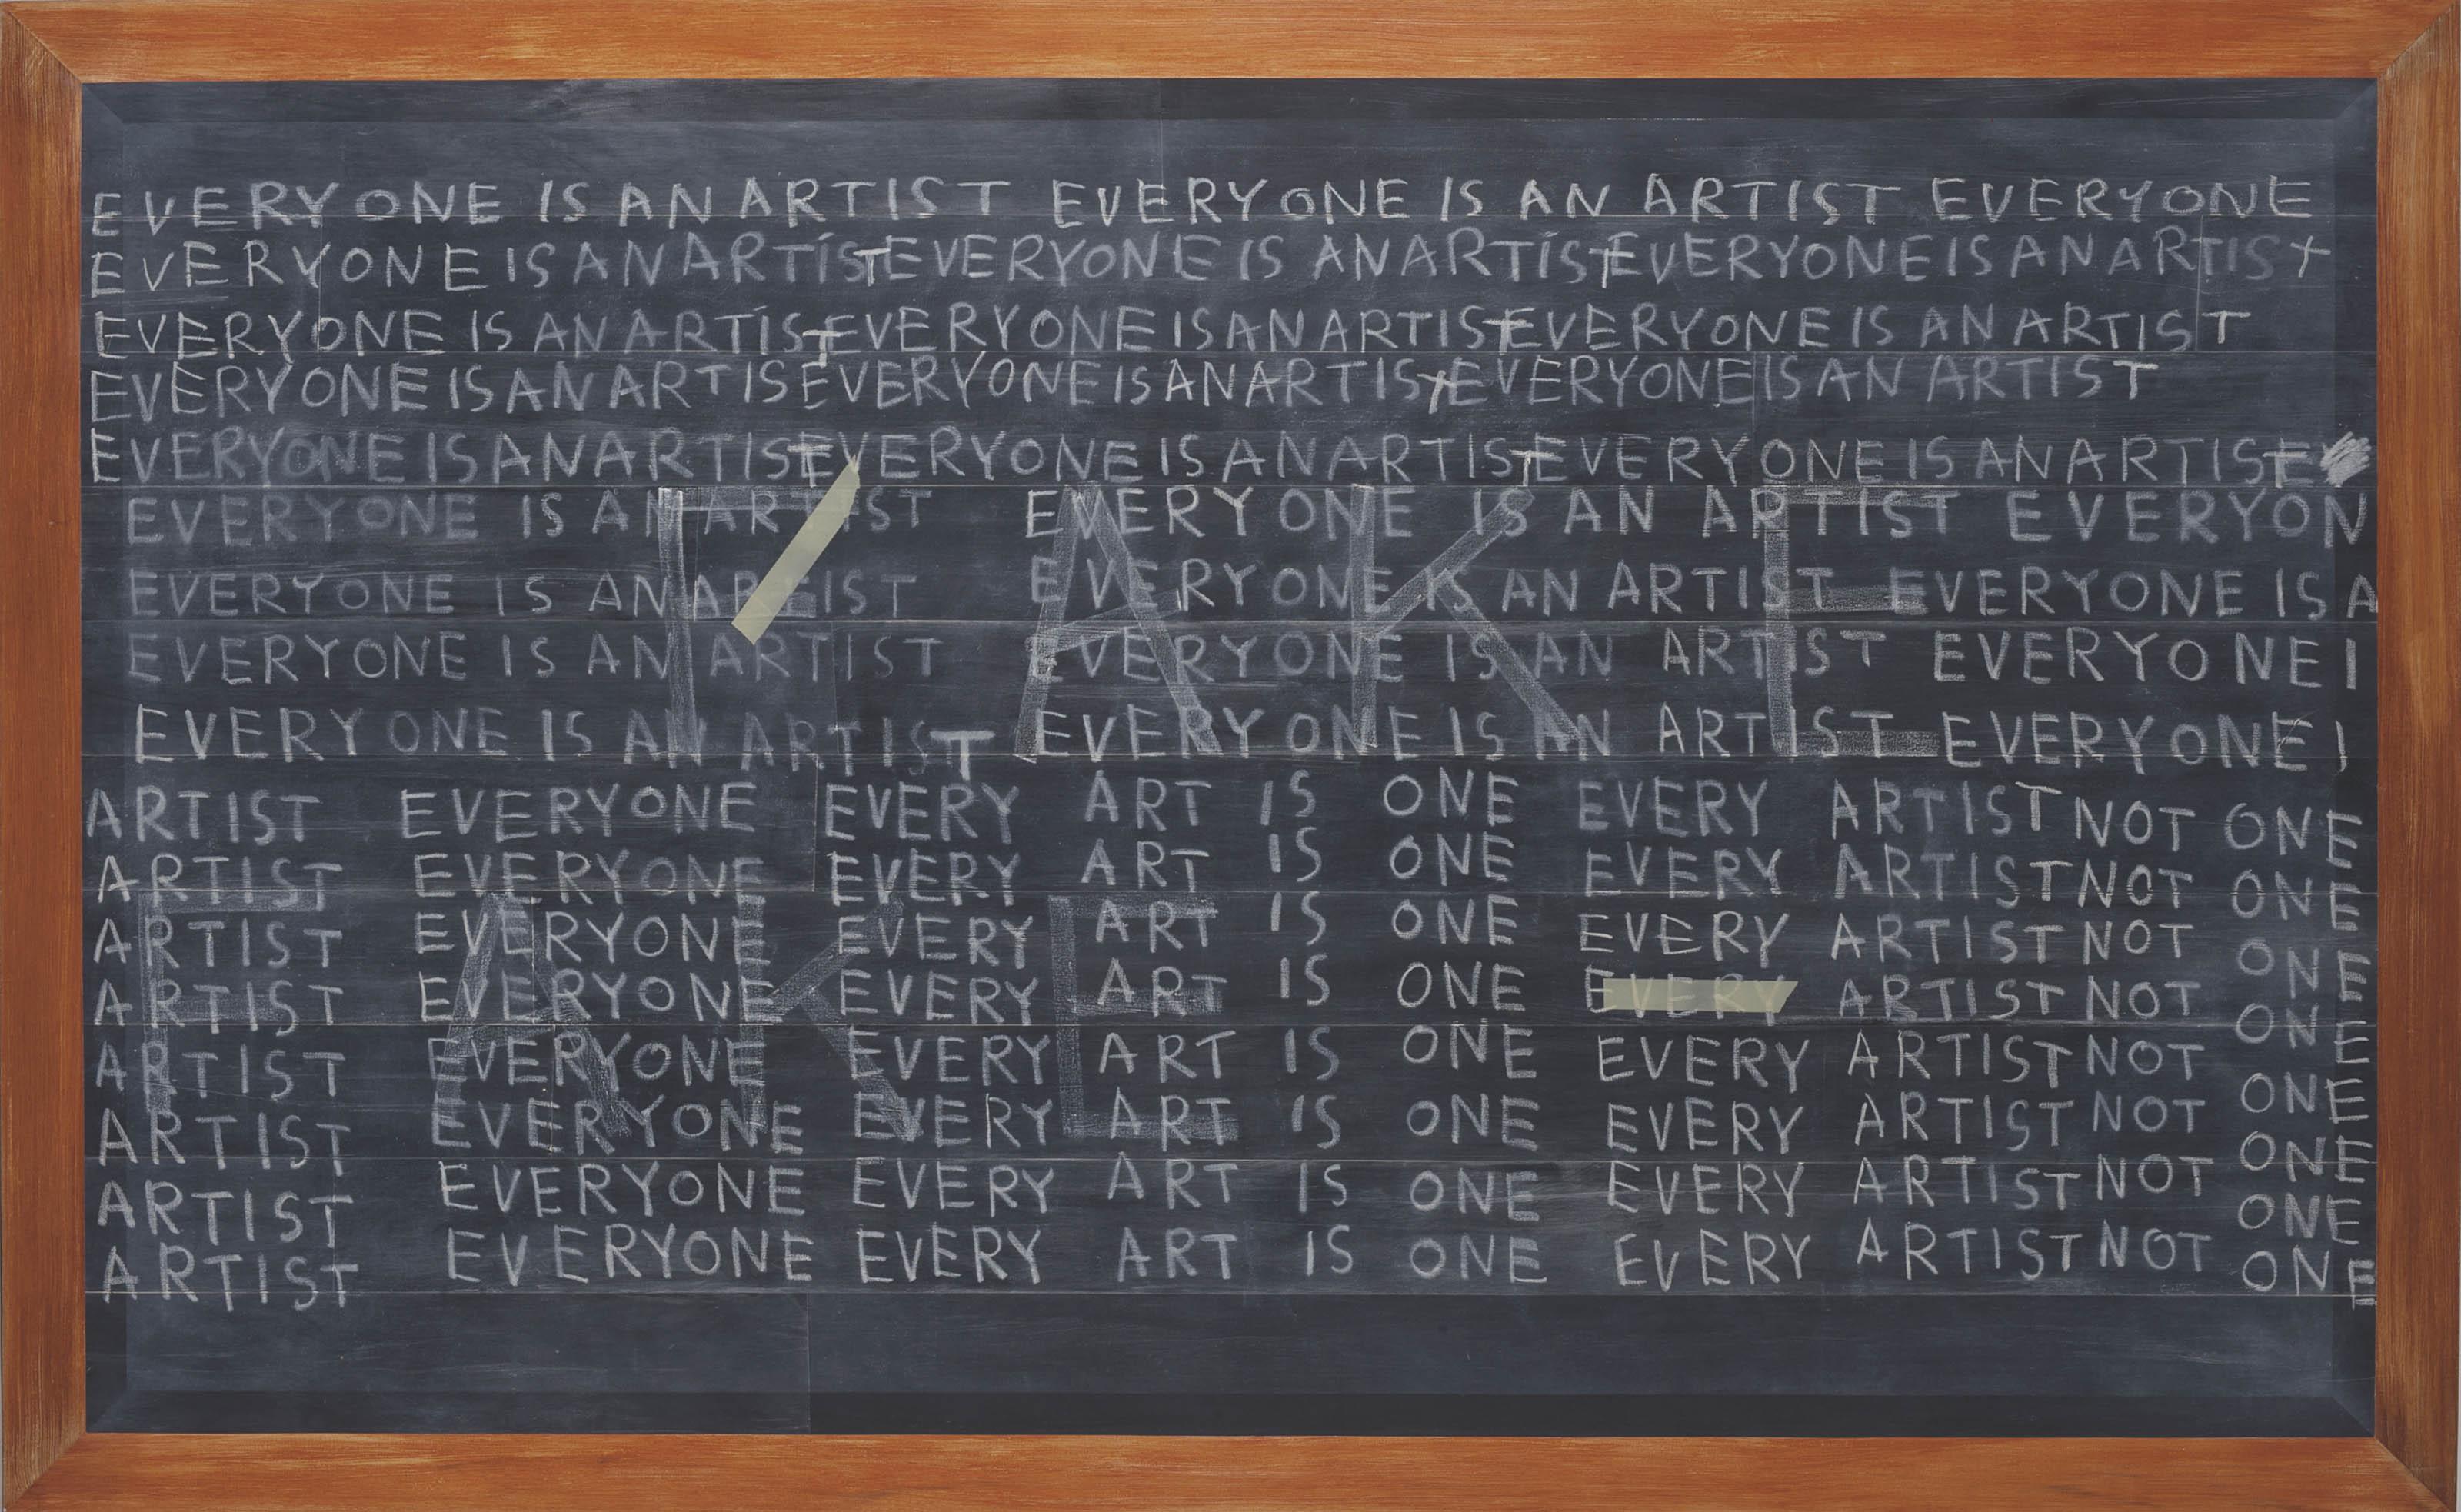 EVERYONE IS AN ARTIST EVERYONE IS AN ARTIST EVERYONE
EVERYONE IS AN ARTÍST EVERYONE IS AN ARTÍST EVERYONE IS AN ARTIST
EVERYONE IS AN ARTÍST EVERYONE IS AN ARTIST EVERYONE IS AN ARTIST
EVERYONE IS AN ARTIS EVERYONE IS AN ARTIST EVERYONE IS AN ARTIST
EVERYONE IS AN ARTIST EVERYONE IS AN ARTIST EVERYONE IS AN ARTIST
EVERYONE IS AN ARTIST EVERYONE IS AN ARTIST EVERYON
EVERYONE IS AN ARTIST EVERYONE IS AN ARTIST EVERYONE IS A
EVERYONE IS AN ARTIST EVERYONE IS AN ARTIST EVERYONE I
EVERYONE IS AN ARTIST EVERYONE IS AN ARTIST EVERYONE I
FAKE
ARTIST EVERYONE EVERY ART IS ONE EVERY ARTIST NOT ONE
ARTIST EVERYONE EVERY ART IS ONE EVERY ARTIST NOT ONE
ARTIST EVERYONE EVERY ART IS ONE EVERY ARTIST NOT ONE
ARTIST EVERYONE EVERY ART IS ONE EVERY ARTIST NOT ONE
ARTIST EVERYONE EVERY ART IS ONE EVERY ARTIST NOT ONE
ARTIST EVERYONE EVERY ART IS ONE EVERY ARTIST NOT ONE
ARTIST EVERYONE EVERY ART IS ONE EVERY ARTIST NOT ONE
ARTIST EVERYONE EVERY ART IS ONE EVERY ARTIST NOT ONE
FAKE